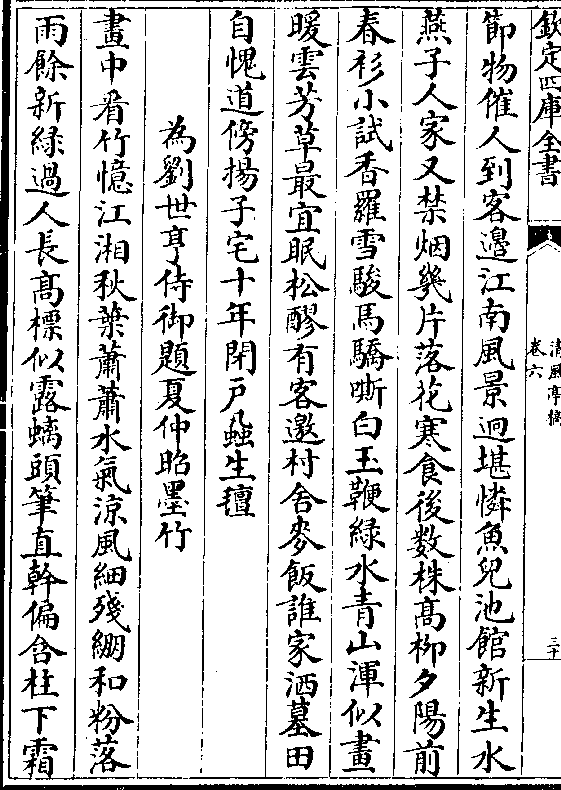 欽定四庫全書
清風亭稿
卷六
三十
節物催人到客邊江南風景迥堪憐魚兒池館新生水
燕子人家又禁烟幾片落花寒食後数株髙柳夕陽前
春衫小試香羅雪駿馬驕嘶白玉鞭緑水青山渾似畫
暖雲芳草最宜眠松醪有客邀村舍麥飯誰家洒墓田
自愧道傍揚子宅十年閉户蝨生氊
為劉世亨侍御題夏仲昭墨竹
畫中看竹憶江湘秋葉蕭蕭水氣凉風細殘綳和粉落
雨餘新緑過人長髙標似露螭頭筆直幹偏含柱下霜